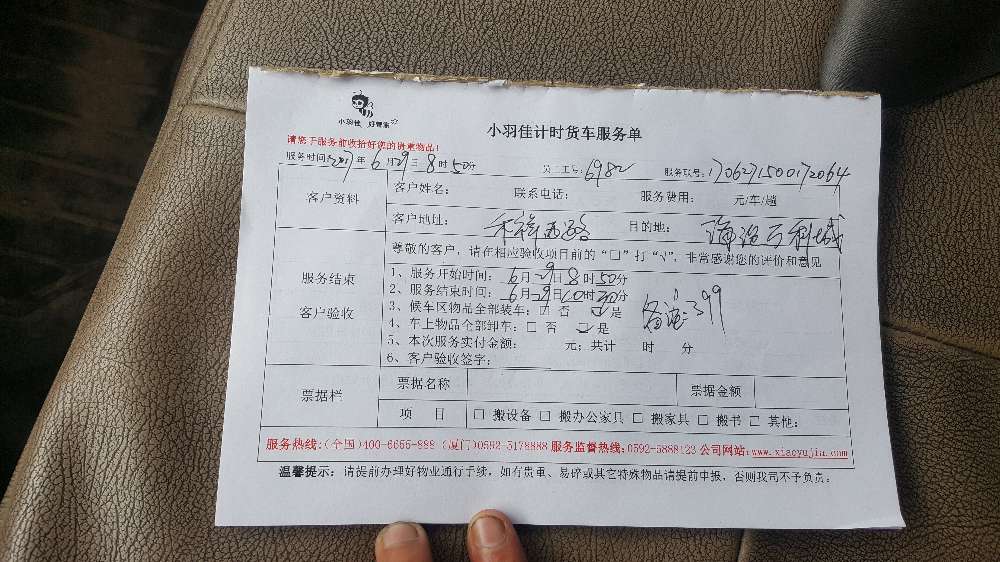 小羽佳 好管家
小羽佳计时货车服务单
请您于服务前收拾好您的贵重物品！
服务时间：2017年6月29日8时50分 员工工号：6982 服务账号：1706271500172064
客户资料
客户姓名： 联系电话： 服务费用： 元/车/趟
客户地址： 禾祥西路 目的地： 海沧万科城
服务结束
客户验收
尊敬的客户，请在相应验收项目前的“□”打“√”，非常感谢您的评价和意见
1、服务开始时间：6月29日8时50分
2、服务结束时间：6月29日10时20分
3、候车区物品全部装车：□ 否 ☑ 是
4、车上物品全部卸车：□ 否 ☑ 是
备注：399
5、本次服务实付金额： 元；共计 时 分
6、客户验收签字：
票据栏
票据名称 票据金额
项 目 □ 搬设备 □ 搬办公家具 □ 搬家具 □ 搬书 □ 其他：
服务热线：（全国）400-6666-888（厦门）0592-5178888 服务监督热线：0592-5888123 公司网站：www.xiaoyujia.com
温馨提示：请提前办理好物业通行手续，如有贵重、易碎或其它特殊物品请提前申报，否则我司不予负责；